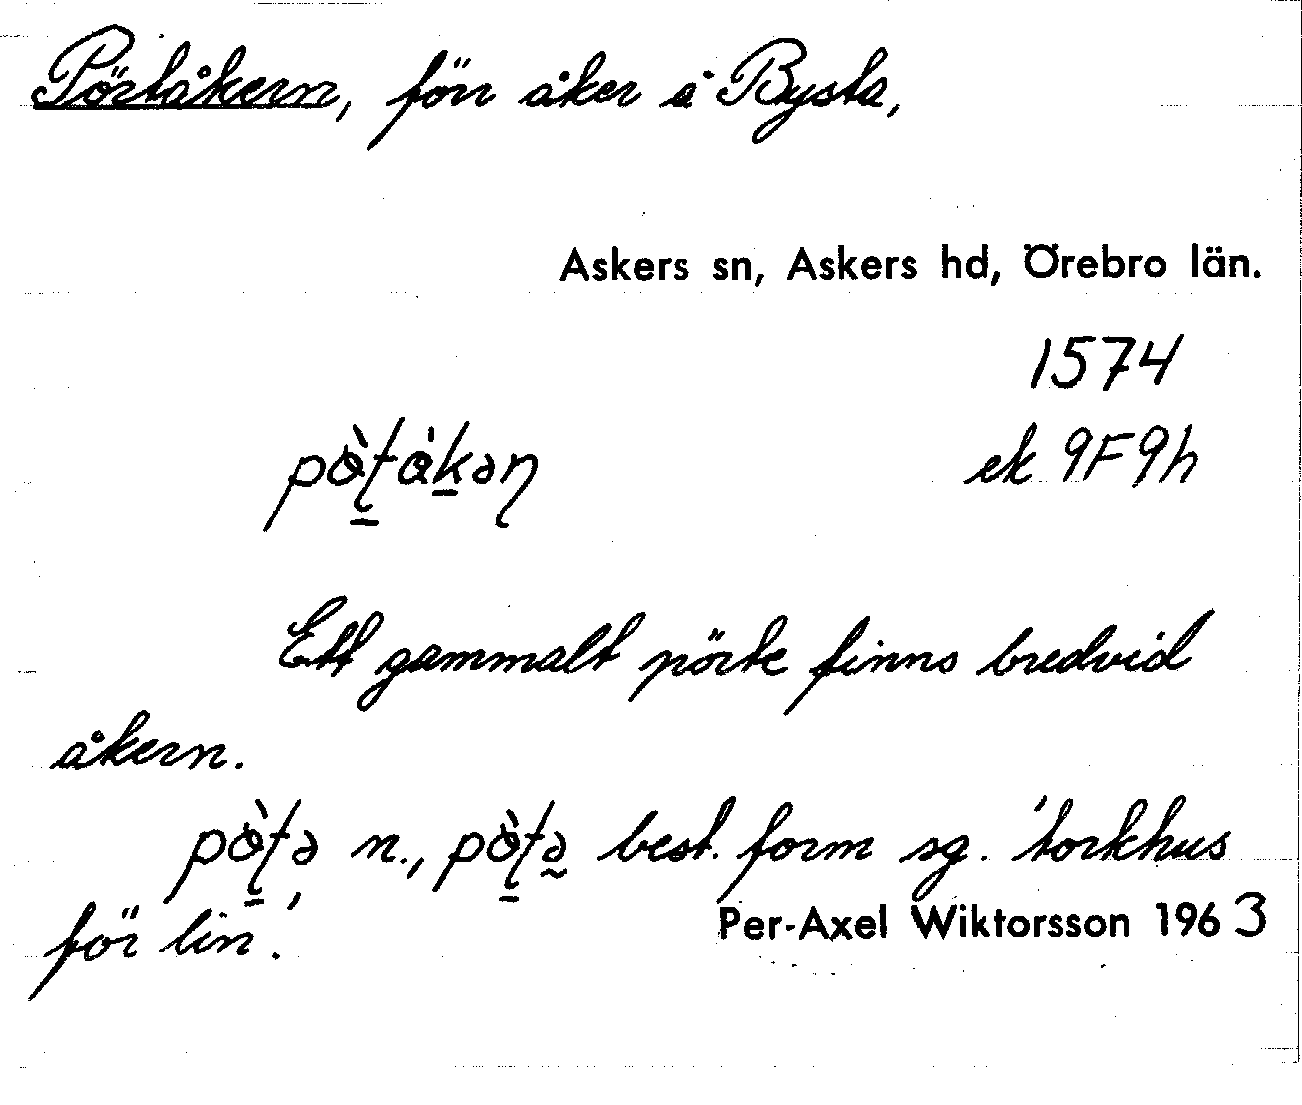 Pörtåkern, förr åker å Bysta,
Askers sn, Askers hd, Örebro län.
1574
ek 9F9h
Ett gammalt pörte finns bredvid
åkern.
n., best. form sg. 'torkhus
för lin'.
Per-Axel Wiktorsson 1963